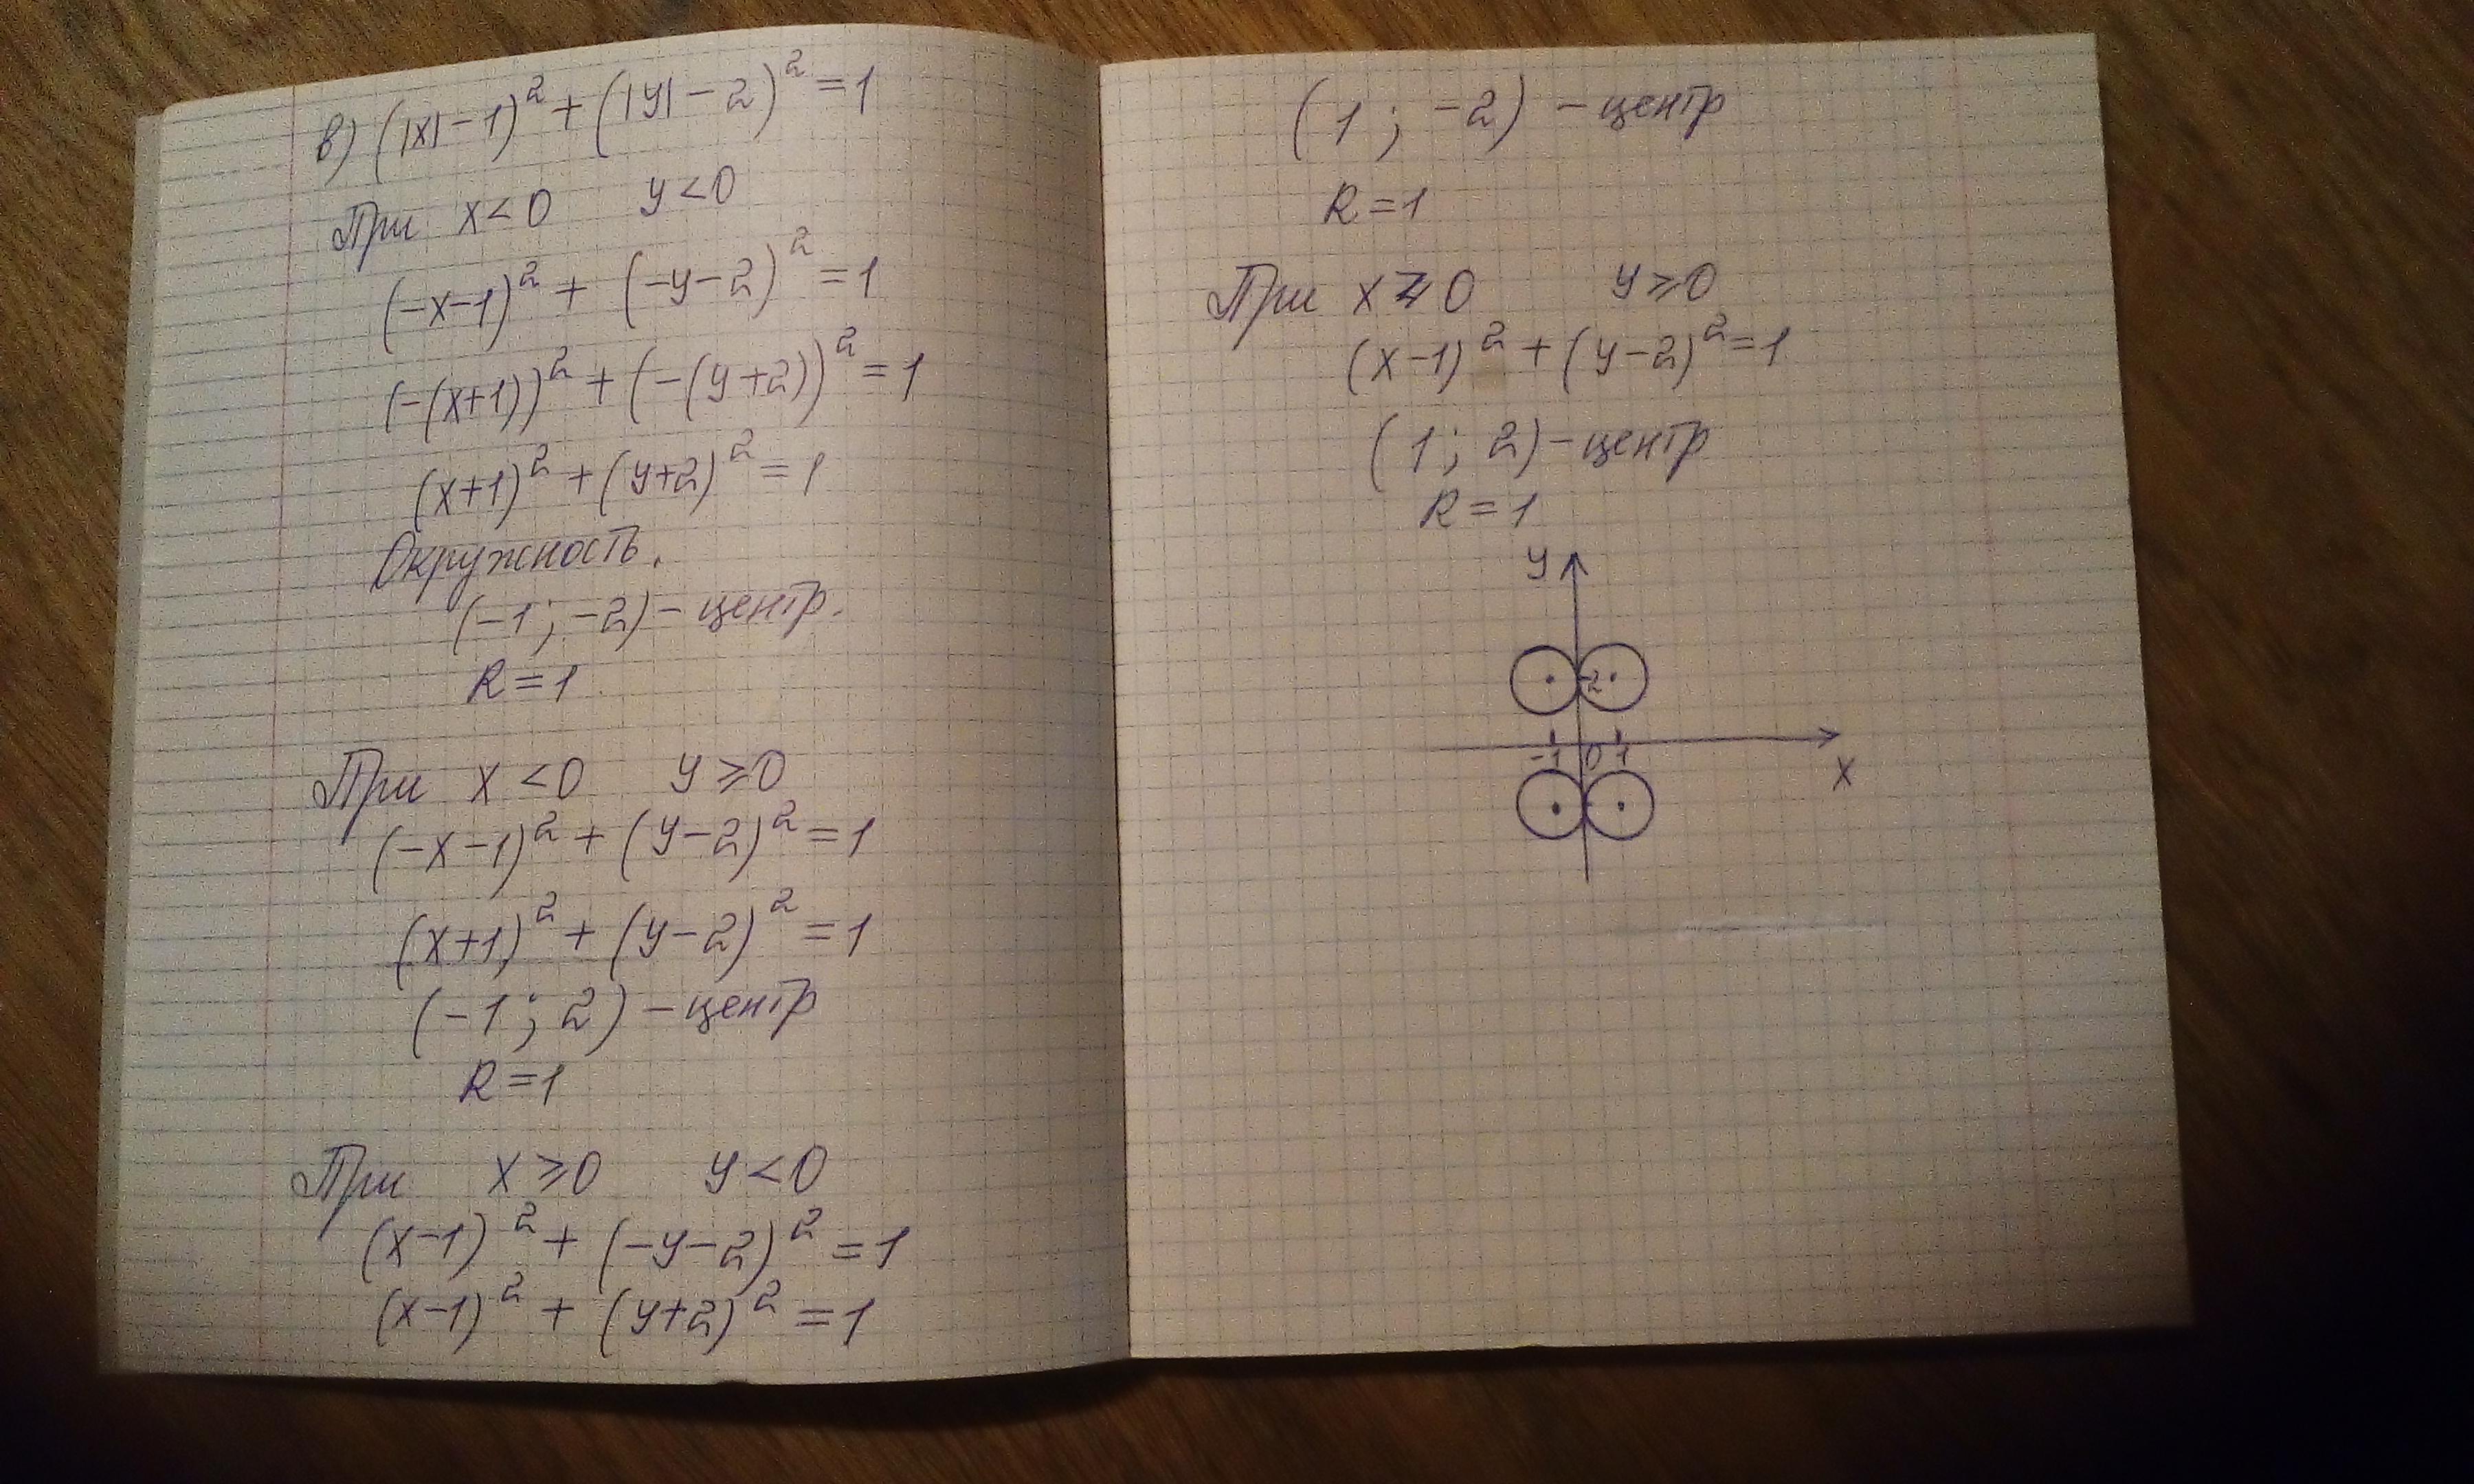 в) (|x|-1)² + (|y|-2)² = 1
При x<0 y<0
(-x-1)² + (-y-2)² = 1
(-(x+1))² + (-(y+2))² = 1
(x+1)² + (y+2)² = 1
Окружность.
(-1; -2) - центр.
R=1
При x<0 y≥0
(-x-1)² + (y-2)² = 1
(x+1)² + (y-2)² = 1
(-1; 2) - центр
R=1
При x≥0 y<0
(x-1)² + (-y-2)² = 1
(x-1)² + (y+2)² = 1
(1; -2) - центр
R=1
При x≥0 y≥0
(x-1)² + (y-2)² = 1
(1; 2) - центр
R=1
y
2
-1 0 1
x